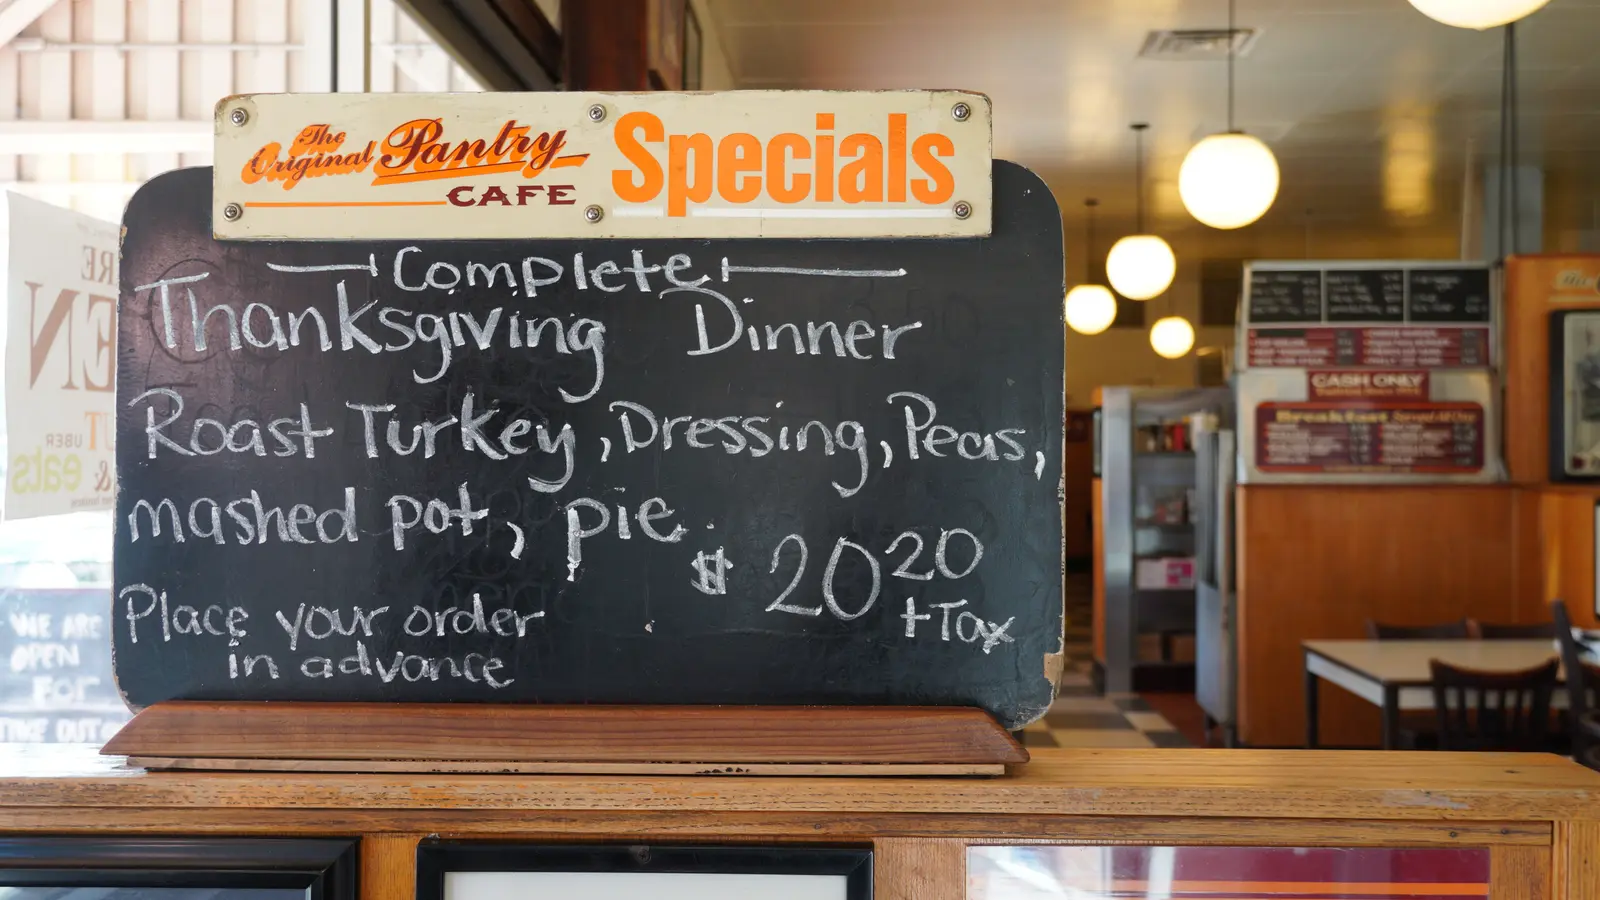 The
Original Pantry
CAFE
Specials
Complete
Thanksgiving Dinner
Roast Turkey, Dressing, Peas,
mashed pot, pie.
$ 20 20
+Tax
Place your order
in advance
EN
UBER
& eats
WE ARE
OPEN
FOR
TAKE OUT
CASH ONLY
Breakfast Served All Day